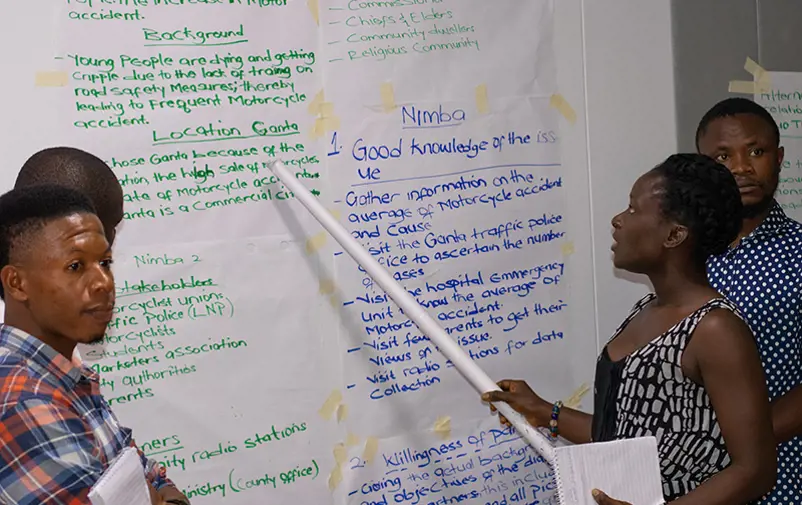 accident.
Background
- Young People are dying and getting
cripple due to the lack of traing on
road safety Measures; thereby
leading to Frequent Motorcycle
accident.
Location Ganta
hose Ganta because of the
ation, the high sale of Motorcycles
ate of Motorcycle accident
anta is a Commercial
Nimba 2
takeholders
orcyclist unions
ffic Police (LNP)
orcyclists
students
arketers association
ty authorities
rents
ners
ity radio stations
inistry (county office)
- Chiefs & Elders
- Community dwellers
- Religious Community
Nimba
1. Good knowledge of the iss
ue
- Gather information on the
average of Motorcycle accident
and Cause
- Visit the Ganta traffic police
office to ascertain the number
of cases
- Visit the hospital Emmergency
unit to know the average of
Motorcycle accident.
- Visit few parents to get their
views on issue.
- Visit radio stations for data
collection
2. Killingness of
- Giving the actual background
and objectives of the
partners this inc
and all